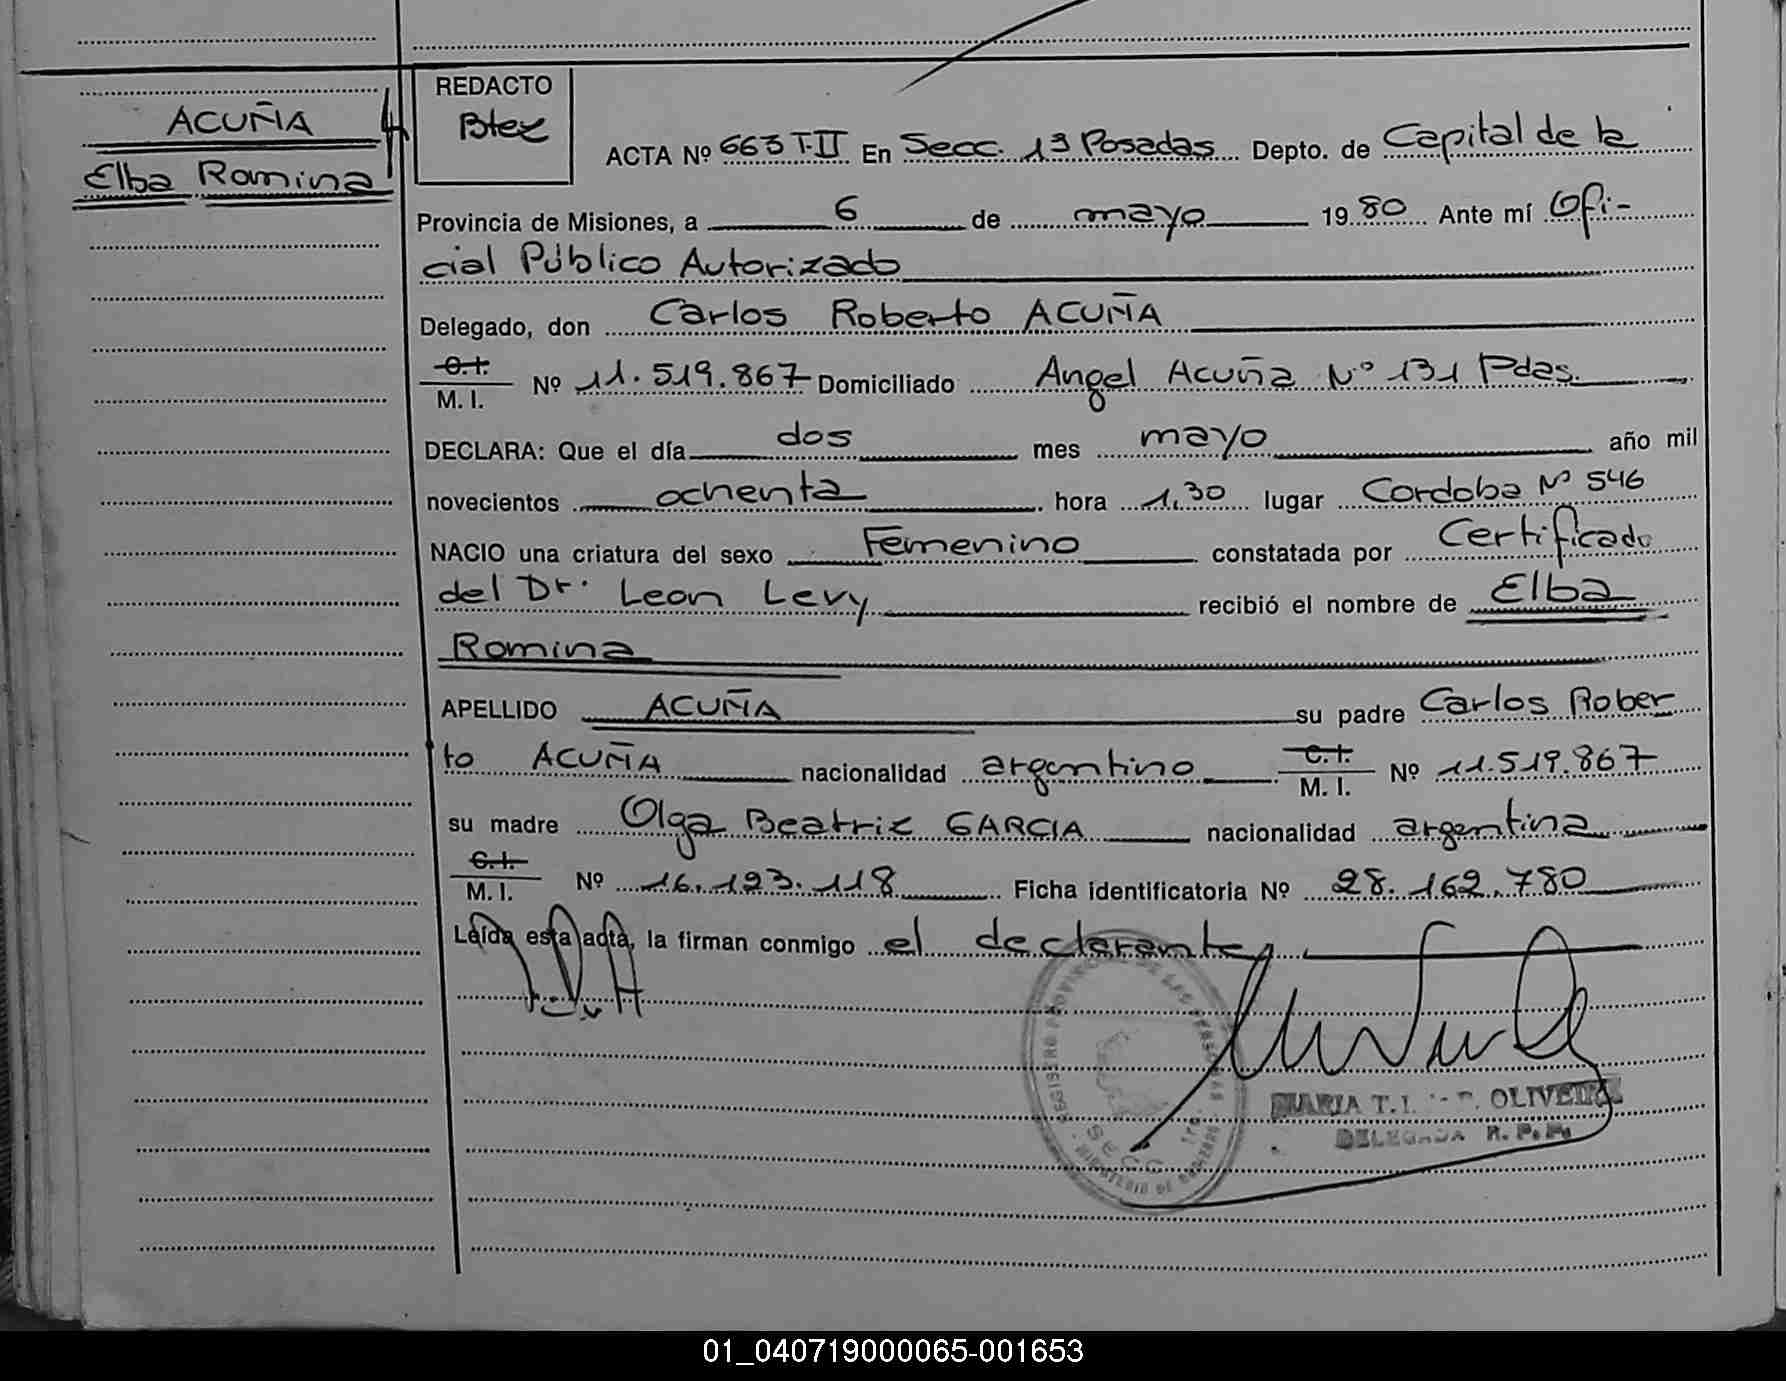 ACUÑA
Elba Romina
REDACTO
ACTA Nº 663 T.II En Secc. 1ª Posadas Depto. de Capital de la
Provincia de Misiones, a 6 de mayo 1980 Ante mí Ofi-
cial Público Autorizado
Delegado, don Carlos Roberto ACUÑA
C.I.
M. I. Nº 11.519.867 Domiciliado Angel Acuña Nº 131 Pdas.
DECLARA: Que el día dos mes mayo año mil
novecientos ochenta hora 1.30 lugar Cordoba Nº 546
NACIO una criatura del sexo Femenino constatada por Certificado
del Dr. Leon Levy recibió el nombre de Elba
Romina
APELLIDO ACUÑA su padre Carlos Rober
to ACUÑA nacionalidad argentino C.I. M. I. Nº 11.519.867
su madre Olga Beatriz GARCIA nacionalidad argentina
C.I.
M. I. Nº 16.123.118 Ficha identificatoria Nº 28.162.780
Leída esta acta, la firman conmigo el declarante
REGISTRO PROVINCIAL DE LAS PERSONAS
SECC. 1ra.
MINISTERIO DE GOBIERNO
MARIA T. OLIVEIRA
DELEGADA R. P. P.
01_040719000065-001653